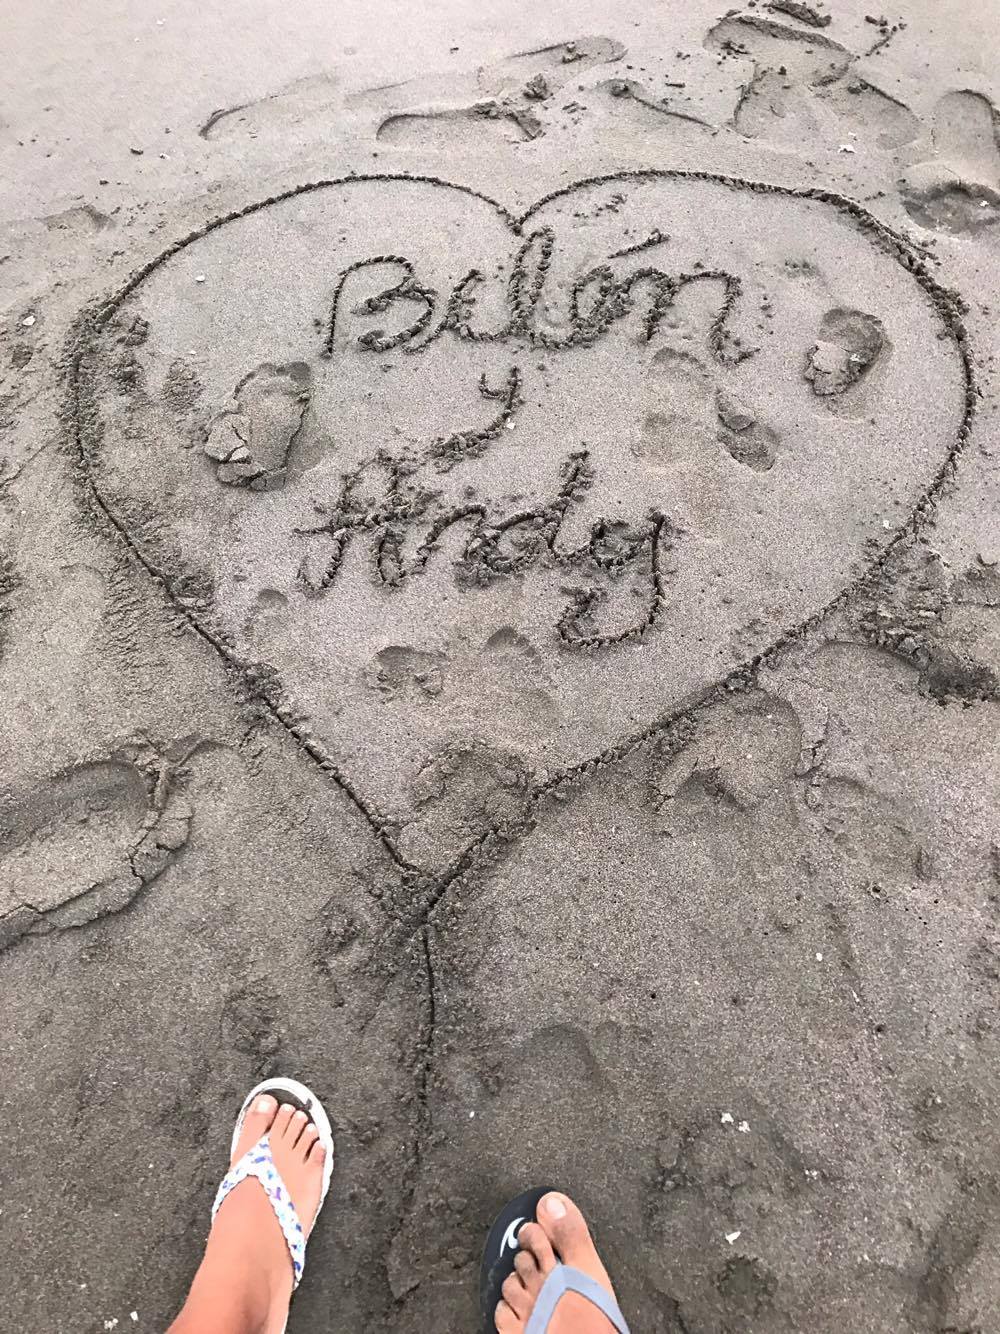 Belén
y
Andy